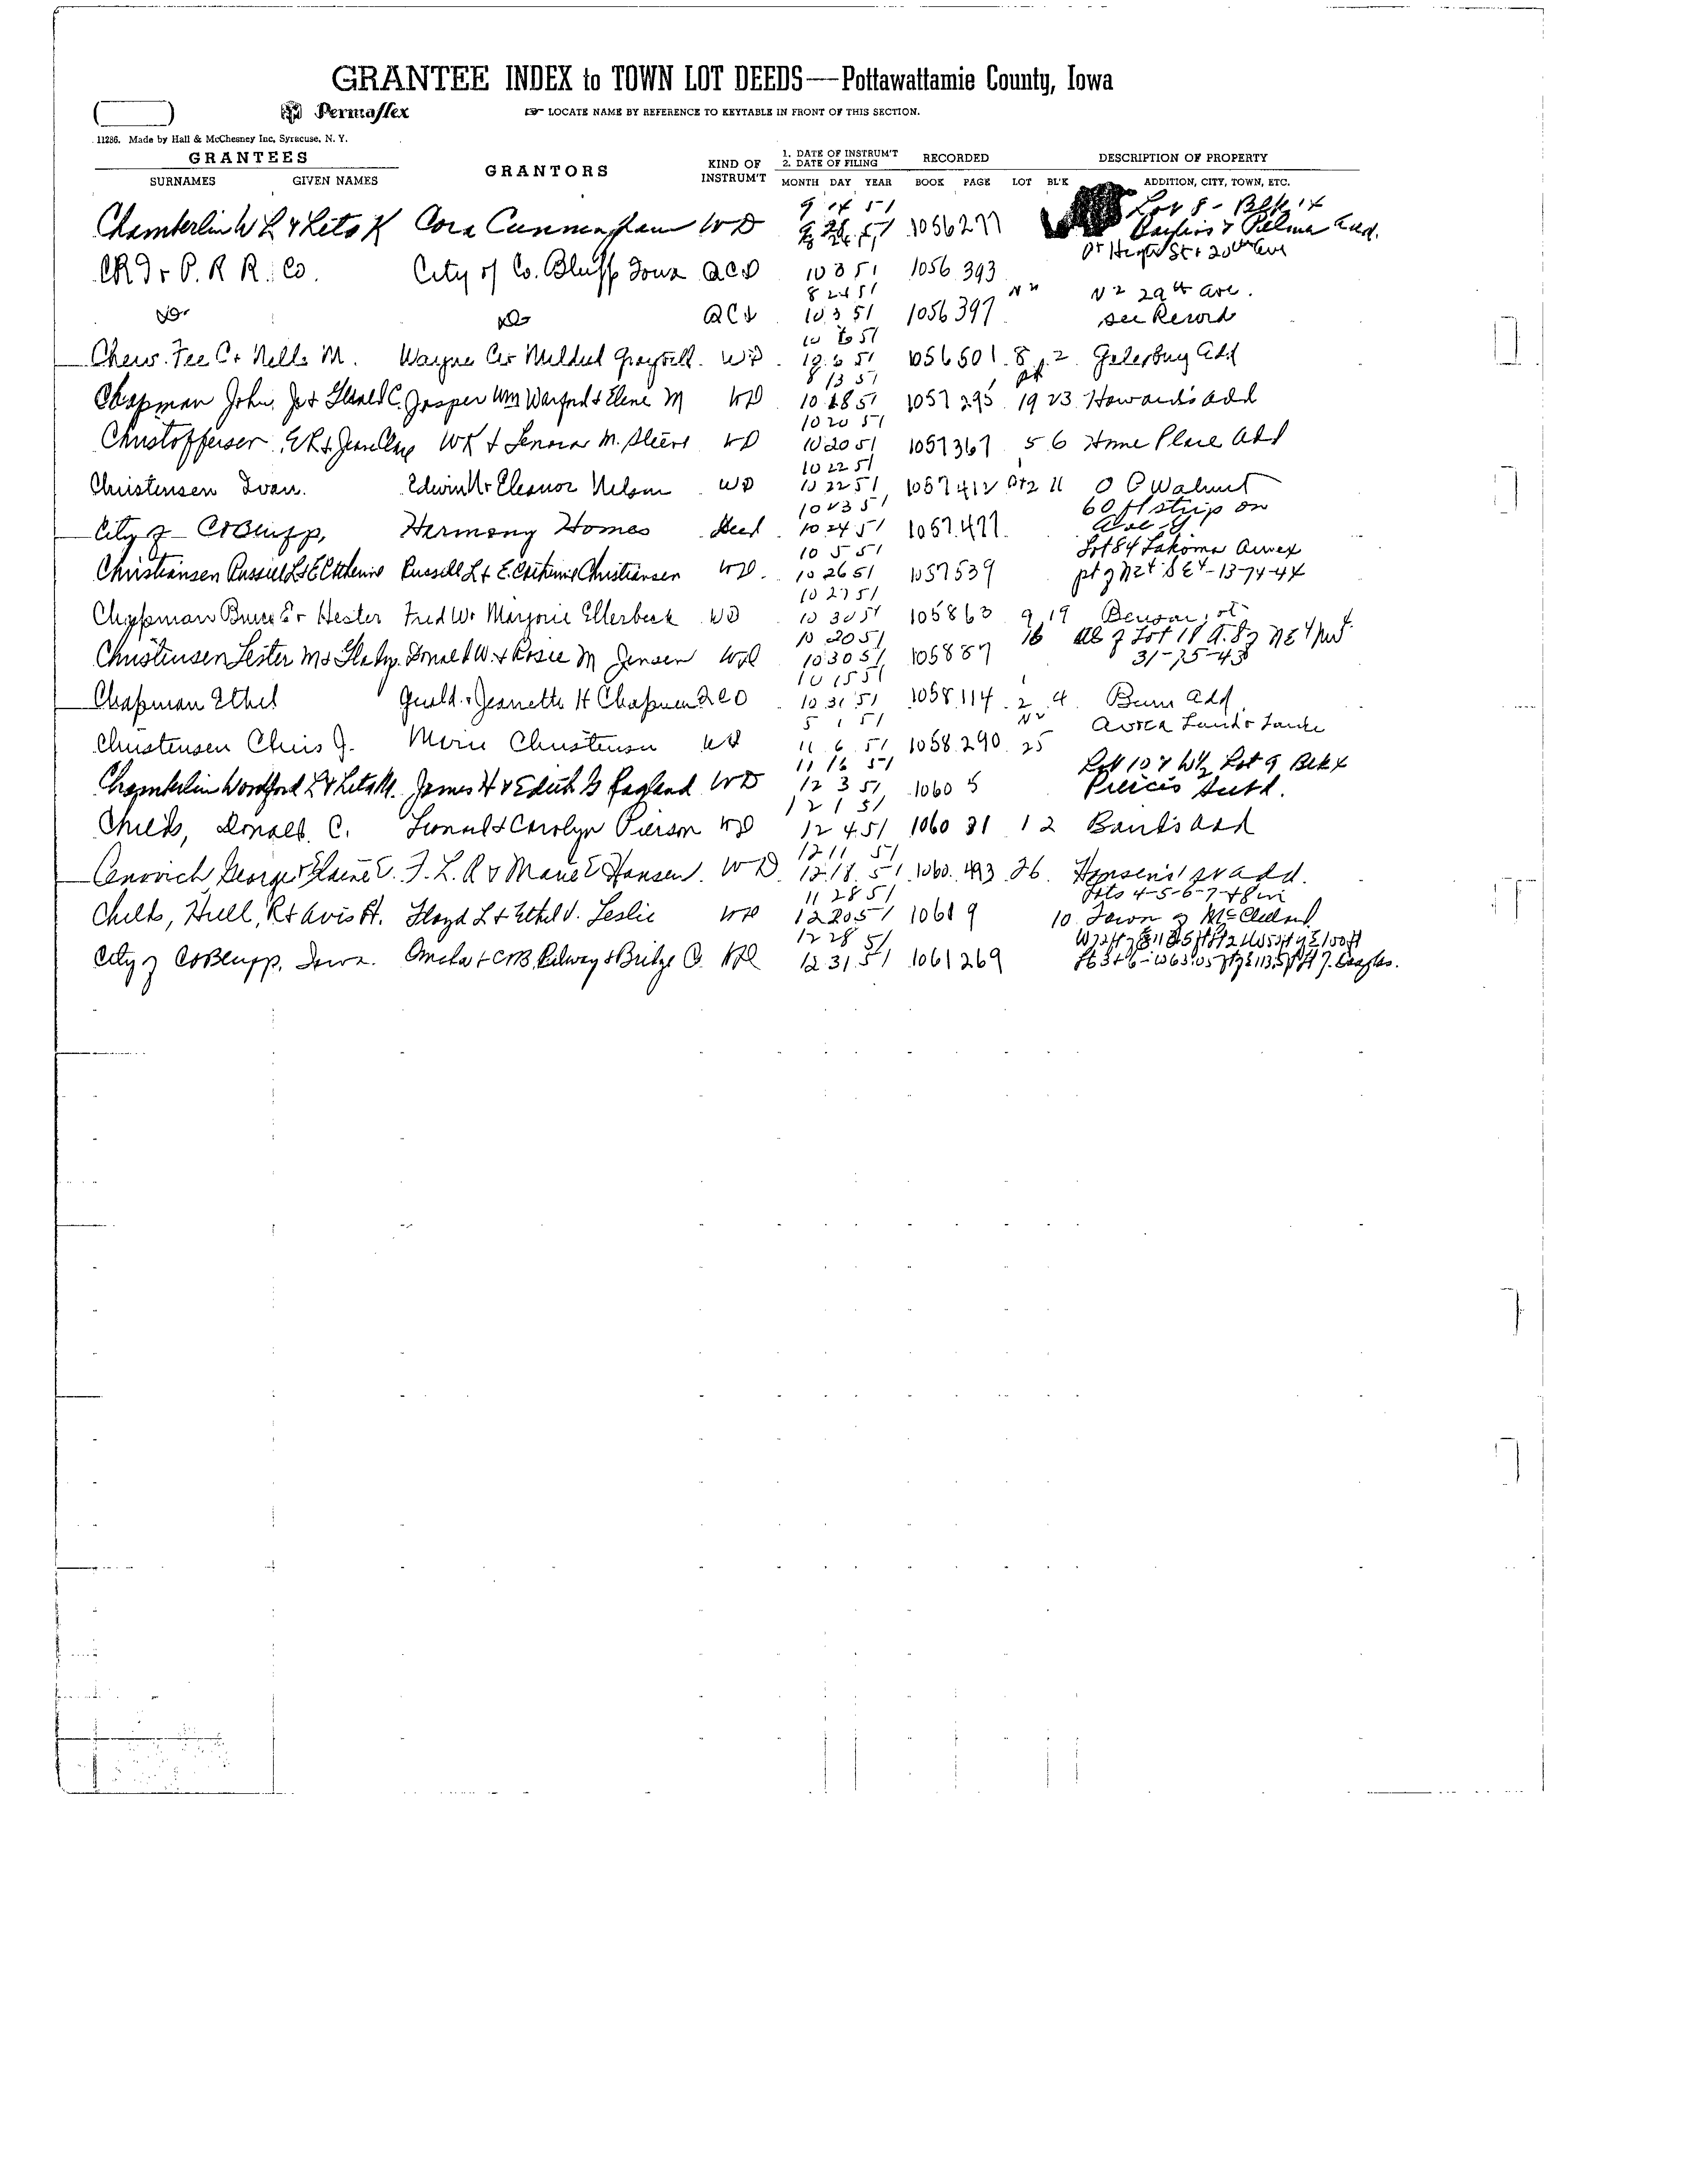 GRANTEE INDEX to TOWN LOT DEEDS—Pottawattamie County, Iowa
Permaflex
☞ LOCATE NAME BY REFERENCE TO KEYTABLE IN FRONT OF THIS SECTION.
11286. Made by Hall & McChesney Inc, Syracuse, N. Y.
GRANTEES GRANTORS KIND OF INSTRUM'T 1. DATE OF INSTRUM'T 2. DATE OF FILING RECORDED DESCRIPTION OF PROPERTY
SURNAMES GIVEN NAMES MONTH DAY YEAR BOOK PAGE LOT BL'K ADDITION, CITY, TOWN, ETC.
9 14 51 Lot 8 - Blk 14
Chamberlin W L & Leta K Cora Cunningham WD 1056 277 & Palmer add.
St & 20th Ave
C R I & P. R R. Co. City of Co. Bluff Iowa QCD 10 3 51 1056 393
8 24 51 N 2 29th Ave.
Do Do QCD 10 3 51 1056 397 See Record
10 6 51
Chew. Fee C & Nelle M. Wayne C & Mildred WD 10 6 51 1056 501 8 2 Galesburg Add
8 13 51 pt
Chapman John, J & Gerald C. Jasper Wm Warford & Elene M WD 10 18 51 1057 295 19 23 Howard's add
10 20 51
Christoffersen, E R & WR & Lenora M. WD 10 20 51 1057 367 5 6 Home Place Add
10 22 51
Christensen Ivan. Edwin N & Eleanor Nelson WD 10 22 51 1057 412 pt2 11 O P Walnut
10 23 51 60 ft strip on
City of Co Bluffs, Harmony Homes Deed 10 24 51 1057 477 Ave G
10 5 51 Lot 84 Lakoma Annex
Christiansen Russell L & E Catherine Russell L & E. Catherine Christiansen WD. 10 26 51 1057 539 pt of 13-74-44
10 27 51
Chapman Bruce E & Hester Fred W & Marjorie Ellerbeck WD 10 30 51 1058 63 9 19 Benson
10 20 51 16 All of Lot
Christensen Lester M & Gladys. Donald W. & Rosie M Jensen WD 10 30 51 1058 87 31-75-43
10 15 51
Chapman Ethel Gerald & Jeanette H Chapman QCD 10 31 51 1058 114 2 4 Burn Add
5 1 51 Avoca
Christensen Chris J. Marie Christensen WD 11 6 51 1058 290 25
11 16 51 Lot 10 & W½ Lot 9 Blk X
Chamberlin Woodford L & Leta M. James H & Edith G Ragland WD 12 3 51 1060 5 Pierce's Subd.
12 1 51
Childs, Donald C. Leonard & Carolyn Pierson WD 12 4 51 1060 31 1 2 Bank's Add
12 11 51
Cenovich George & Elaine E. F. L. R & Marie E Hansen. WD 12 18 51 1060 493 26 Hansen's add.
11 28 51 Lots 4-5-6-7-&8 in
Childs, Hull, R & Avis A. Floyd L & Ethel V. Leslie WD 12 20 51 1061 9 10 Town of McClelland
12 28 51
City of Co Bluffs, Iowa. Omaha & C B, Railway & Bridge Co WD 12 31 51 1061 269